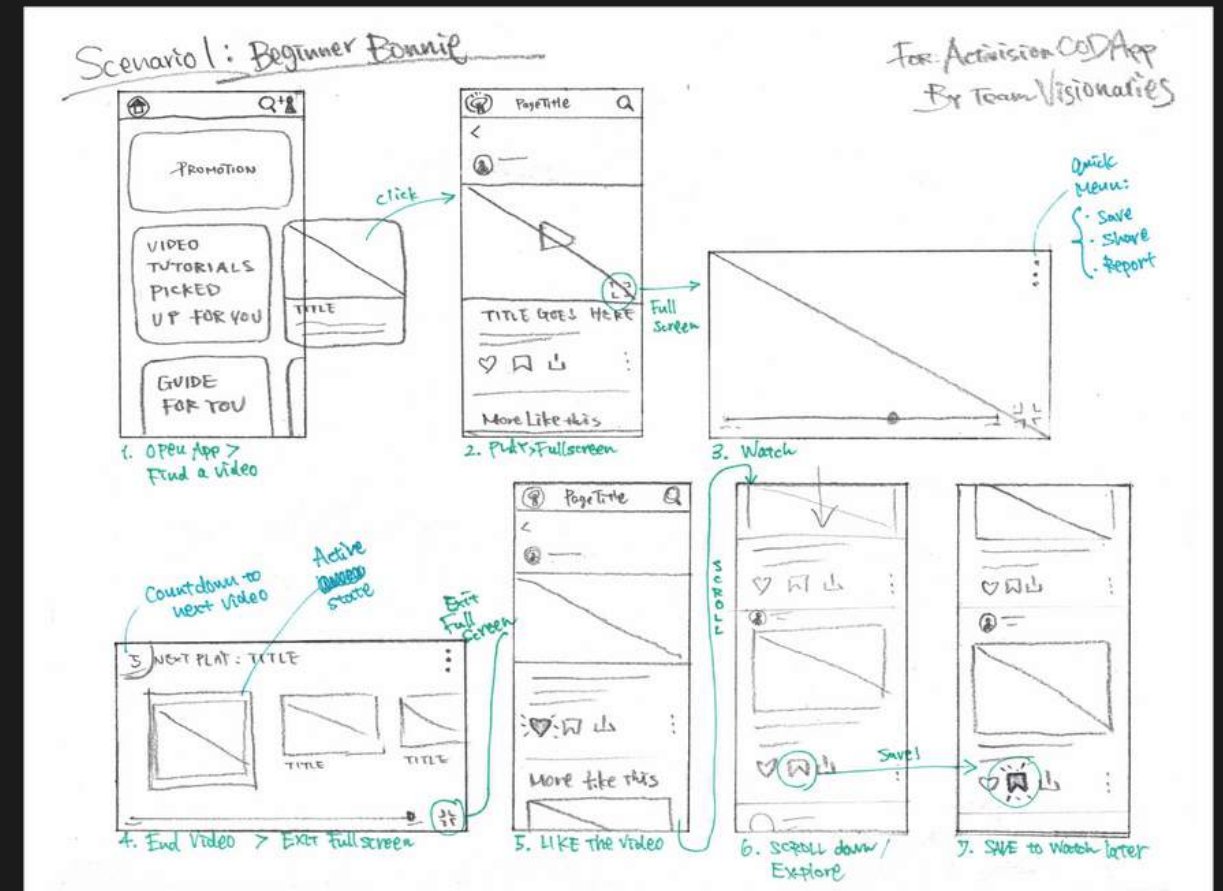 Scenario 1: Beginner Bonnie
For: Activision COD App
By Team Visionaries
PROMOTION
VIDEO
TUTORIALS
PICKED
UP FOR YOU
TITLE
GUIDE
FOR YOU
1. Open App >
Find a video
click
PageTitle
TITLE GOES HERE
More Like this
2. PLAY>Fullscreen
Full
Screen
Quick
Menu:
· Save
· Share
· Report
3. Watch
Countdown to
next video
Active
state
5
NEXT PLAY: TITLE
TITLE
TITLE
4. End Video > Exit Fullscreen
Exit
Full
Screen
PageTitle
More like this
5. LIKE the video
SCROLL
6. SCROLL down/
Explore
Save!
7. SAVE to Watch later